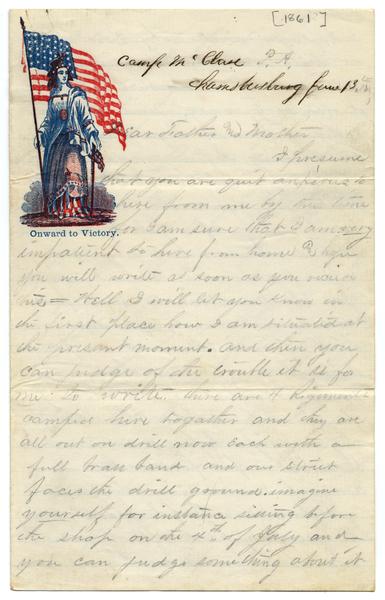 [1861]
Camp McClure P. A.
Chambersburg June 13
Dear Father and Mother
I presume
that you are quit anxious to
here from me by this time
for I am sure that I am very
impatient to here from home I hope
you will write as soon as you recive
this = Well I will let you know in
the first place how I am situated at
the presant moment. and then you
can judge of the trouble it is for
me to write. there are 4 Regiments
camped hire together and they are
all out on drill now each with a
full brass band and our street
faces the drill ground. imagine
yourself for instance sitting before
the shop on the 4th of July and
you can judge something about it
Onward to Victory.